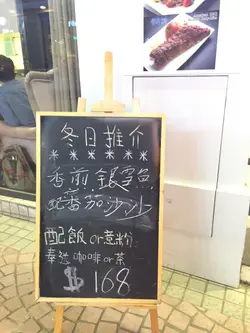 冬日推介
******
香煎銀雪魚
配番茄沙沙
配飯or意粉
奉送咖啡or茶
$168